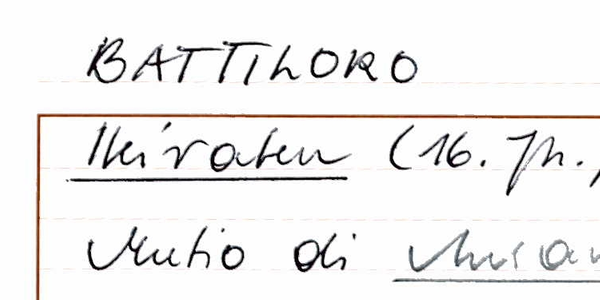 BATTILORO
Heiraten (16. Jh.,
Mutio di